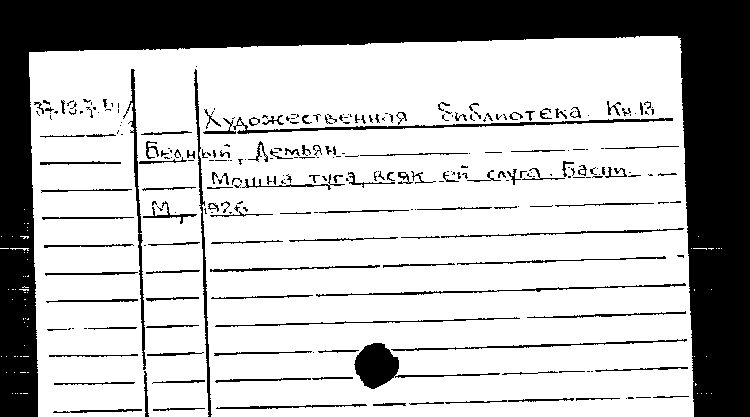 Художественная библиотека. Кн. 13
Бедный, Демьян.
Мошна туга, всяк ей слуга. Басни.
М., 1926